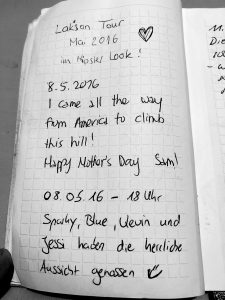 Lakson Tour
Mai 2016
im Hipster Look!
8.5.2016
I came all the way
from America to climb
this hill!
Happy Mother's Day Sam!
08.05.16 - 18 Uhr
Sparky, Blue, und
Jessi haben die herrliche
Aussicht genossen
11.
Die